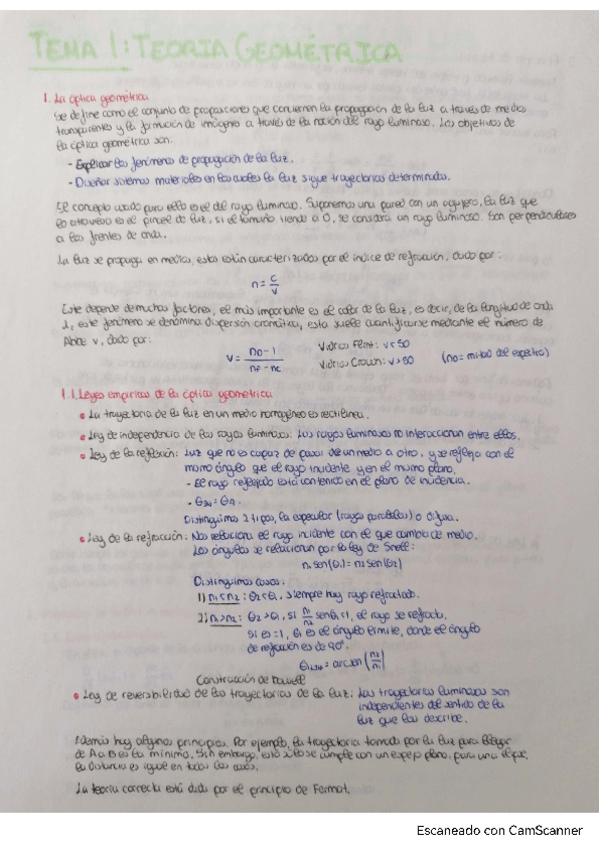 TEMA 1: TEORIA GEOMÉTRICA
1. La óptica geométrica
Se define como el conjunto de proposiciones que conciernen la propagación de la luz a través de medios
transparentes y la formación de imágenes a través de la noción del rayo luminoso. Los objetivos de
la óptica geométrica son:
- Explicar los fenómenos de propagación de la luz.
- Diseñar sistemas materiales en los cuales la luz sigue trayectorias determinadas.
El concepto usado para ello es el del rayo luminoso. Suponemos una pared con un agujero, la luz que
lo atraviesa es el pincel de luz, si el tamaño tiende a 0, se considera un rayo luminoso. Son perpendiculares
a los frentes de onda.
La luz se propaga en medios, estos están caracterizados por el índice de refracción, dado por:
n = c/v
Este depende de muchos factores, el más importante es el color de la luz, es decir, de la longitud de onda
λ, este fenómeno se denomina dispersión cromática, esta suele cuantificarse mediante el número de
Abbe v, dado por:
V = nD-1 / nF-nC
Vidrios Flint: v<50
Vidrios Crown: v>50
(nD = mitad del espectro)
1.1. Leyes empíricas de la óptica geométrica
• La trayectoria de la luz en un medio homogéneo es rectilínea.
• Ley de independencia de los rayos luminosos: Los rayos luminosos no interaccionan entre ellos.
• Ley de la reflexión: Luz que no es capaz de pasar de un medio a otro, y se refleja con el
mismo ángulo que el rayo incidente y en el mismo plano.
- El rayo reflejado está contenido en el plano de incidencia.
Distinguimos 2 tipos, la especular (rayos paralelos) o difusa.
• Ley de la refracción: Nos relaciona el rayo incidente con el que cambia de medio.
Los ángulos se relacionan por la ley de Snell:
n₁ sen(θ₁) = n₂ sen(θ₂)
Distinguimos casos:
1) n₁<n₂: θ₂<θ₁, siempre hay rayo refractado.
2) n₁>n₂: θ₂>θ₁, si n₁/n₂ senθ₁<1, el rayo se refracta,
si es =1, θ₁ es el ángulo límite, donde el ángulo
de refracción es de 90°.
= arcsen (n₂/n₁)
Construcción de
• Ley de reversibilidad de las trayectorias de la luz: Las trayectorias luminosas son
independientes del sentido de la
luz que las describe.
Además hay algunos principios. Por ejemplo, la trayectoria tomada por la luz para llegar
de A a B es la mínima. Sin embargo, esto sólo se cumple con un espejo plano, para una elipse,
la distancia es igual en todos los casos.
La teoría correcta está dada por el principio de Fermat.
Escaneado con CamScanner